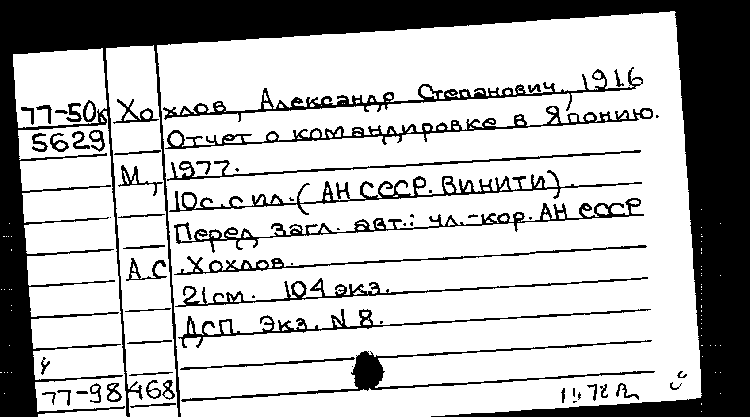 77-50к Хохлов, Александр Степанович, 1916
5629 Отчет о командировке в Японию.
М., 1977.
10с. с ил. (АН СССР. ВИНИТИ).
Перед загл. авт.: чл.-кор. АН СССР
А.С. Хохлов.
21см. 104 экз.
ДСП. Экз. N 8.
77-98468